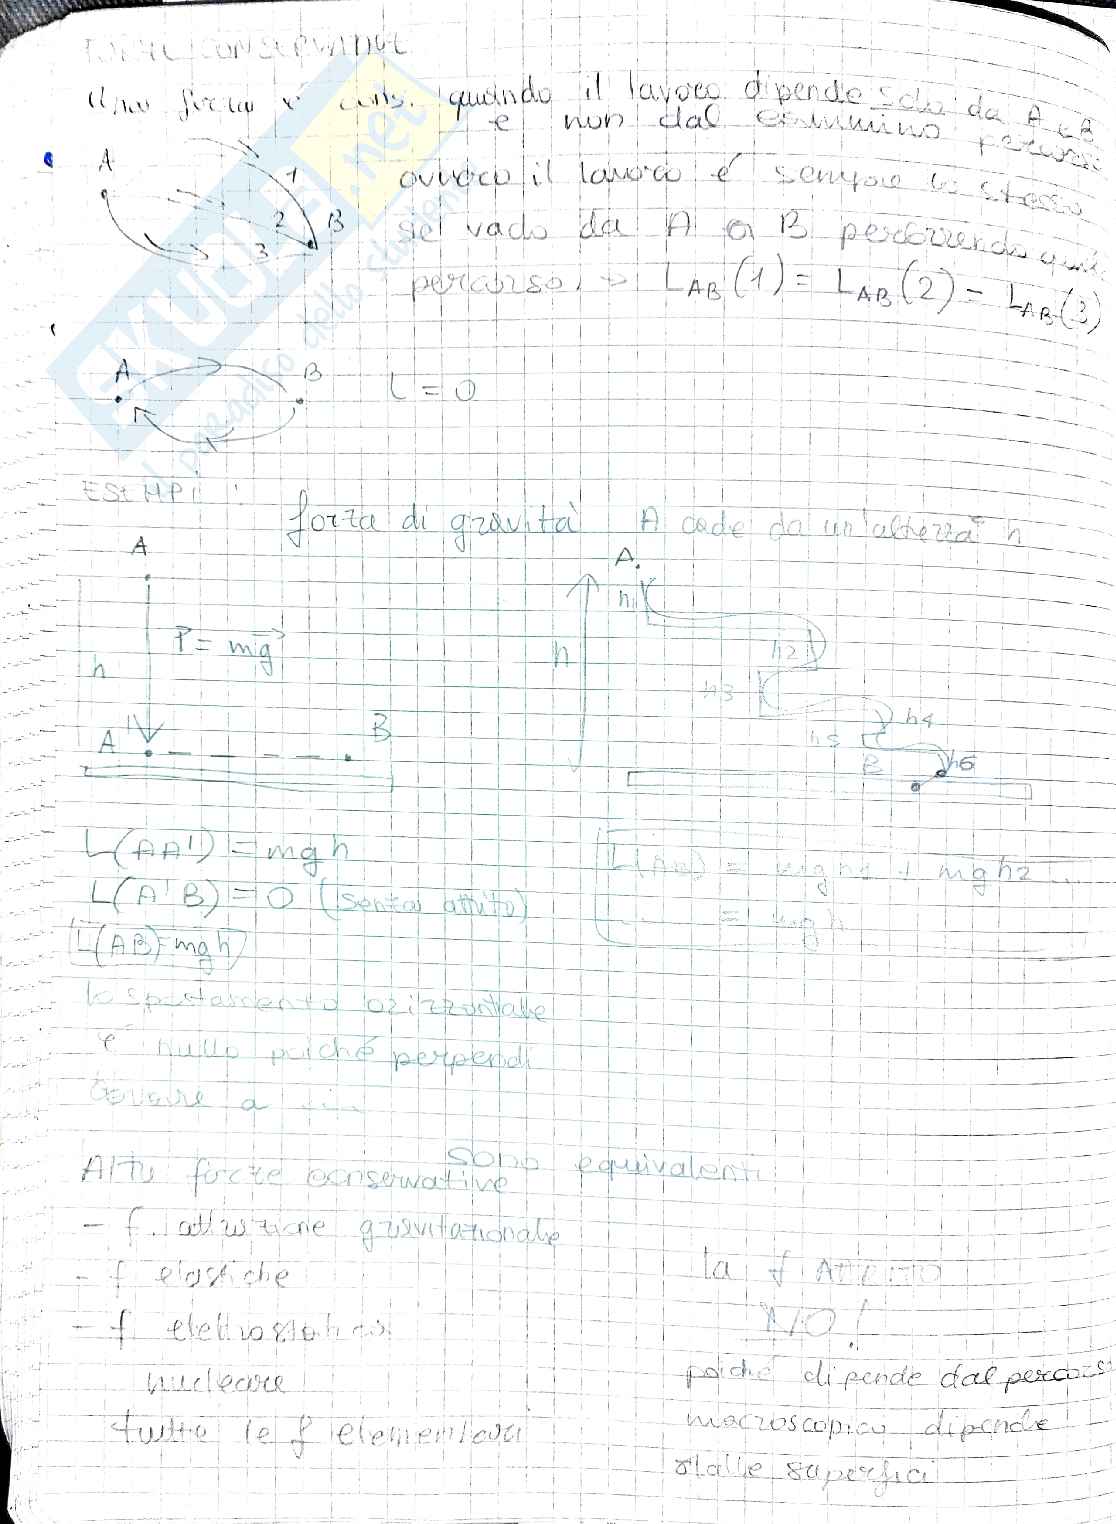 FORZE CONSERVATIVE
Una forza è cons. quando il lavoro dipende solo da A e B
e non dal cammino percorso
A
1
2
3
B
ovvero il lavoro é sempre lo stesso
se vado da A a B percorrendo
percorso. → L_AB (1) = L_AB (2) = L_AB (3)
A
B
L = 0
SKUOLA.net
il paradiso dello studente
ESEMPI:
forza di gravità A cade da un'altezza h
A
h
P = mg
A'
B
A.
h
h1
h2
h3
h4
h5
h6
B
L(AA') = mgh
L(A'B) = 0 (senza attrito)
L(AB) = mgh
L(AB) = mgh1 + mgh2 ...
= mgh
lo spostamento orizzontale
é nullo poiché perpendi
colare a
sono equivalenti
Altre forze conservative
- f. attrazione gravitazionale
- f elastiche
- f elettrostatica
nucleare
tutte le f elementari
la f ATTRITO
NO!
poiché dipende dal percorso
macroscopico dipende
dalle superfici